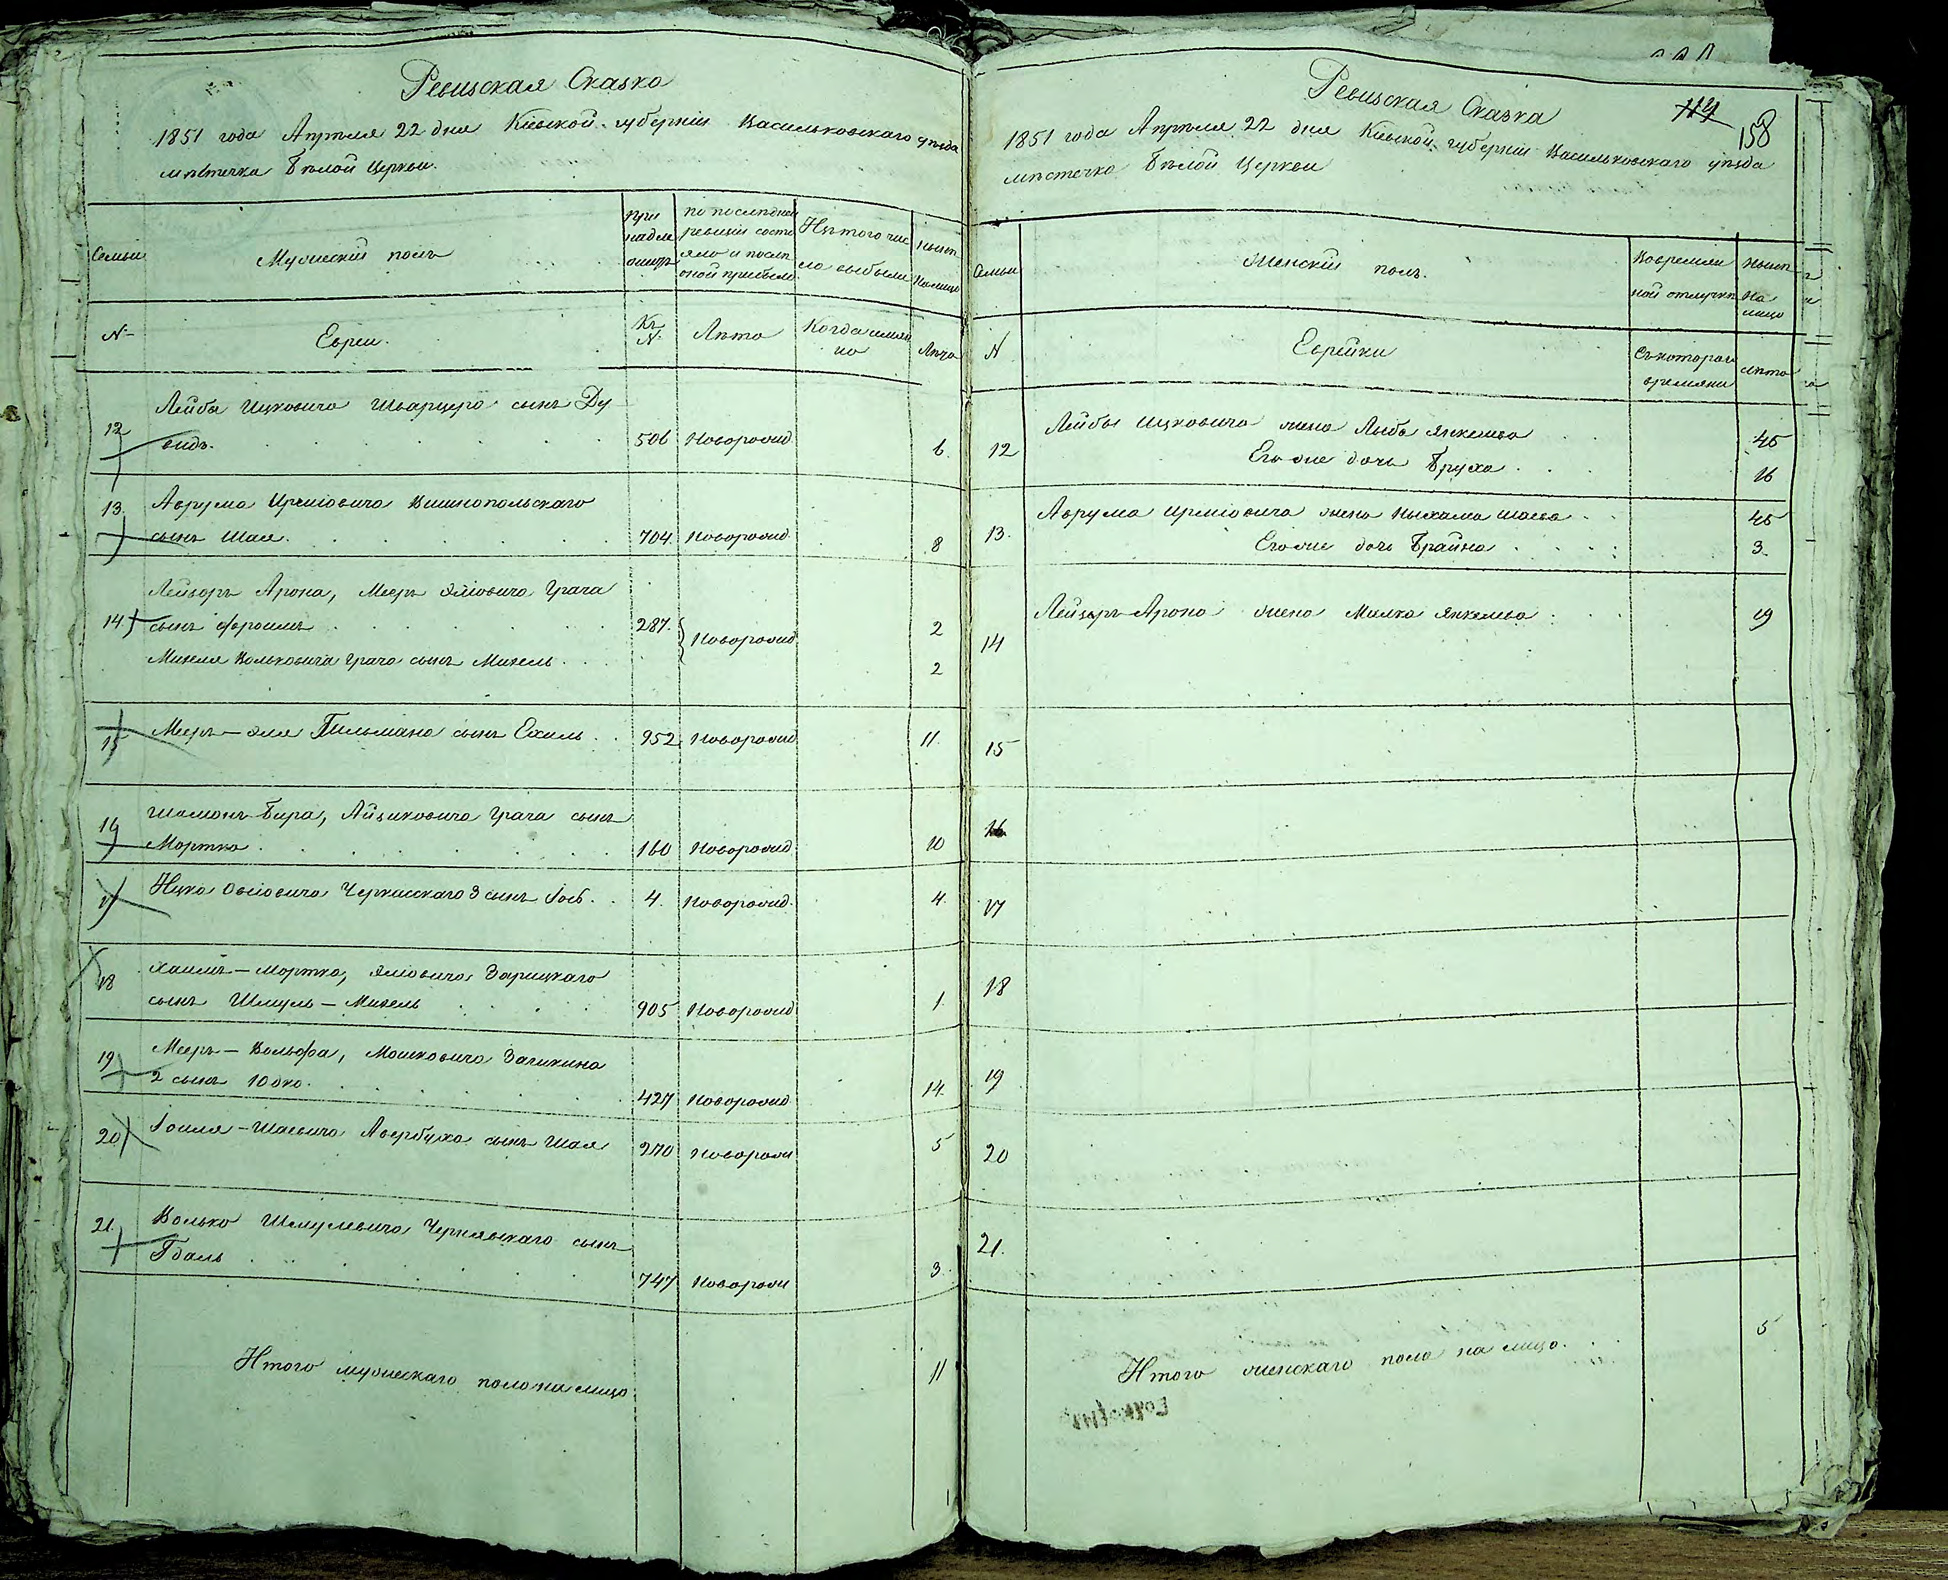 Ревизская Сказка
1851 года Апреля 22 дня Кіевской губерніи Васильковскаго уѣзда
мѣстечка Бѣлой Церкви.
Семьи
Мужескій полъ
при надле житъ
по последней ревизіи состояло и посл оной прибыло
Изъ того числа выбыли
нынѣ на лицо
№
Евреи.
Къ №
Лѣта
Когда именно
Лѣта
12
Лейбы Ицковича Шварцера сынъ Ду
видъ.
506
новорожд
6.
13.
Аврума Иреміовича Вишнопольскаго
сынъ Шая.
704.
новорожд
8
14
Лейзоръ Арона, Мееръ Эліовича Грача
сынъ Фроимъ
287.
новорожд
2
Михеля Вольковича Грача сынъ Михель.
2
15
Мееръ-Эля Гильмана сынъ Ехиль.
952
новорожд
11.
16
Шимонъ-Бера, Айзиковича Грача сынъ
Мортко.
160
новорожд
10
17
Ицка Овшіовича Черкасскаго 3 сынъ Іось.
4.
новорожд.
4.
18
Хаимъ-Мортка, Эліовича Зарицкаго
сынъ Шмуль-Михель
905
новорожд
1
19
Мееръ-Вольфа, Мошковича
2 сынъ Юдко.
427
новорожд
14.
20
Іоиля-Шаевича Авербуха сынъ Шая
270
новорож
5
21.
Волько Шмулевича Чернявскаго сынъ
Гдаль
747
новорож
3.
Итого мужескаго пола на лицо
11
Ревизская Сказка
114
158
1851 года Апрѣля 22 дня Кіевской губерніи Васильковскаго уѣзда
мѣстечка Бѣлой Церкви
Семьи
Женскій полъ.
Во временной отлучкѣ
нынѣ на лицо
N
Еврейки
Съ котораго времяни
лѣта
12
Лейбы Ицковича жена Лыба Янкелева
45
Его же дочь Бруха.
16
13.
Аврума Ирміовича жена Ныхама Шаева
45
Его же дочь Брайна
3.
14
Лейзоръ-Арона жена Малка Янкелева
19
15
16
17
18
19
20
21.
Итого женскаго пола на лицо.
5